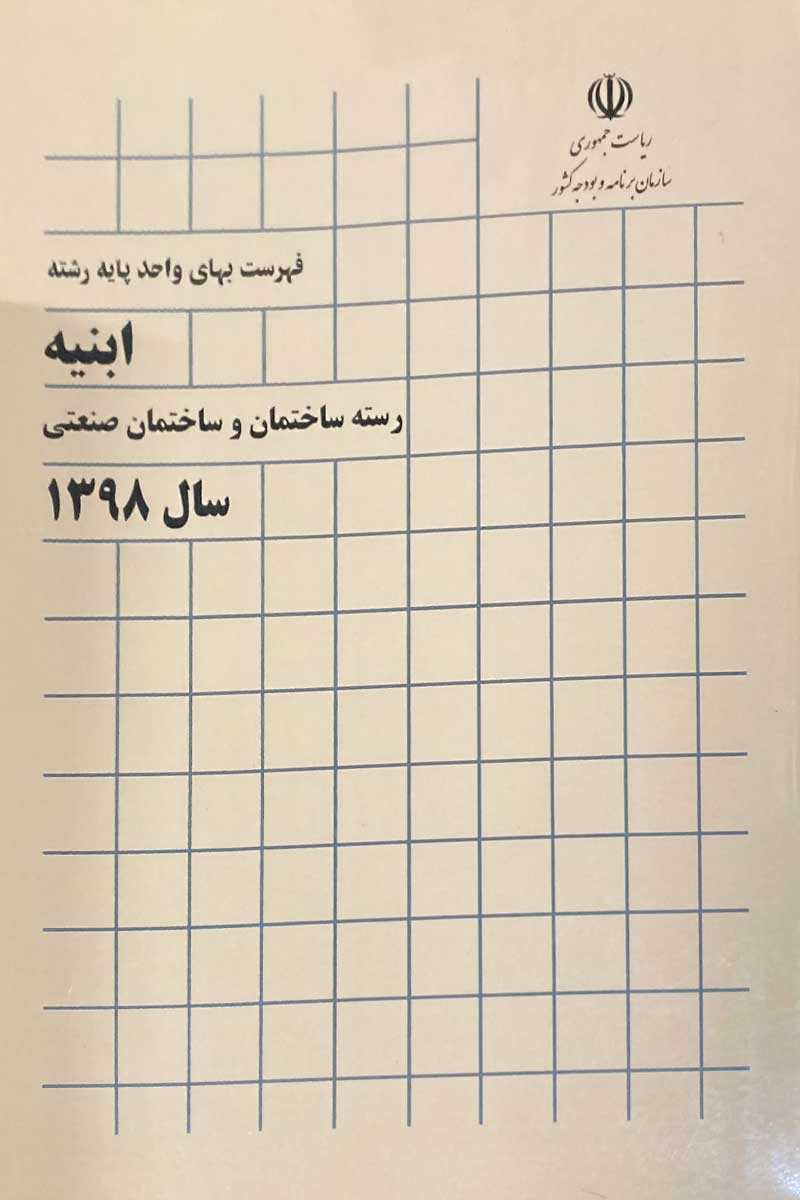 ریاست جمهوری
سازمان برنامه و بودجه کشور
فهرست بهای واحد پایه رشته
ابنیه
رسته ساختمان و ساختمان صنعتی
سال ۱۳۹۸